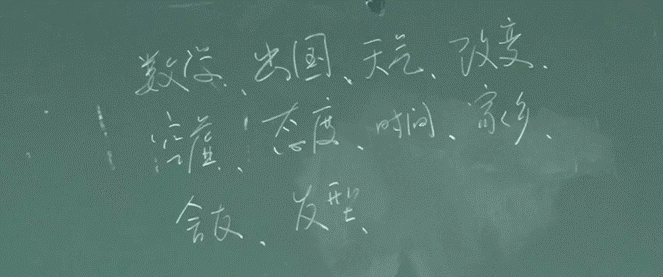 数学、出国、天气、改变、
态度、时间、家乡、
舍友、发型、